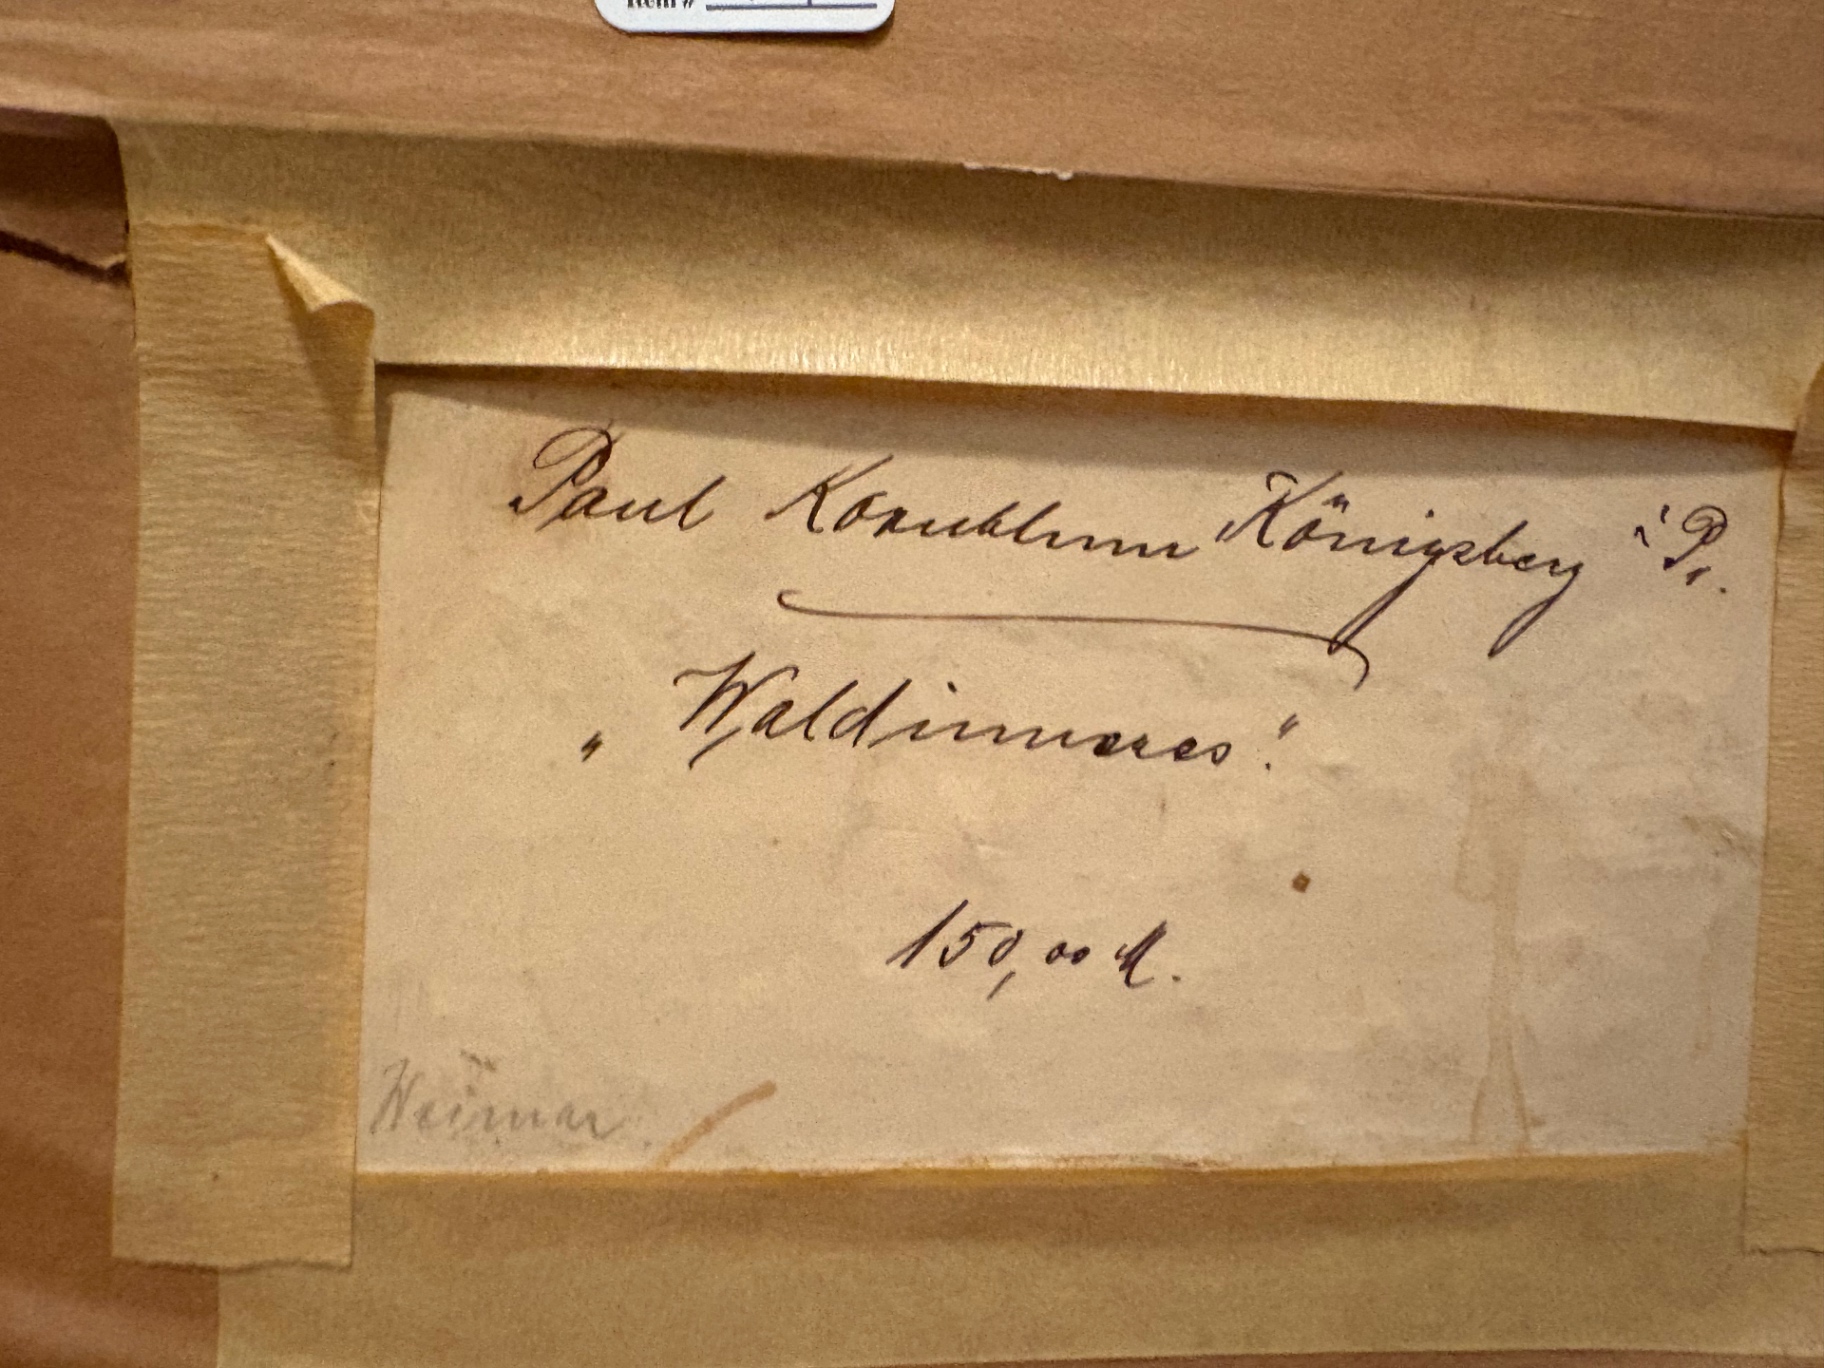 Item #
Paul Kornblum Königsberg i. Pr.
„Waldinneres".
150,00 M.
Weimar